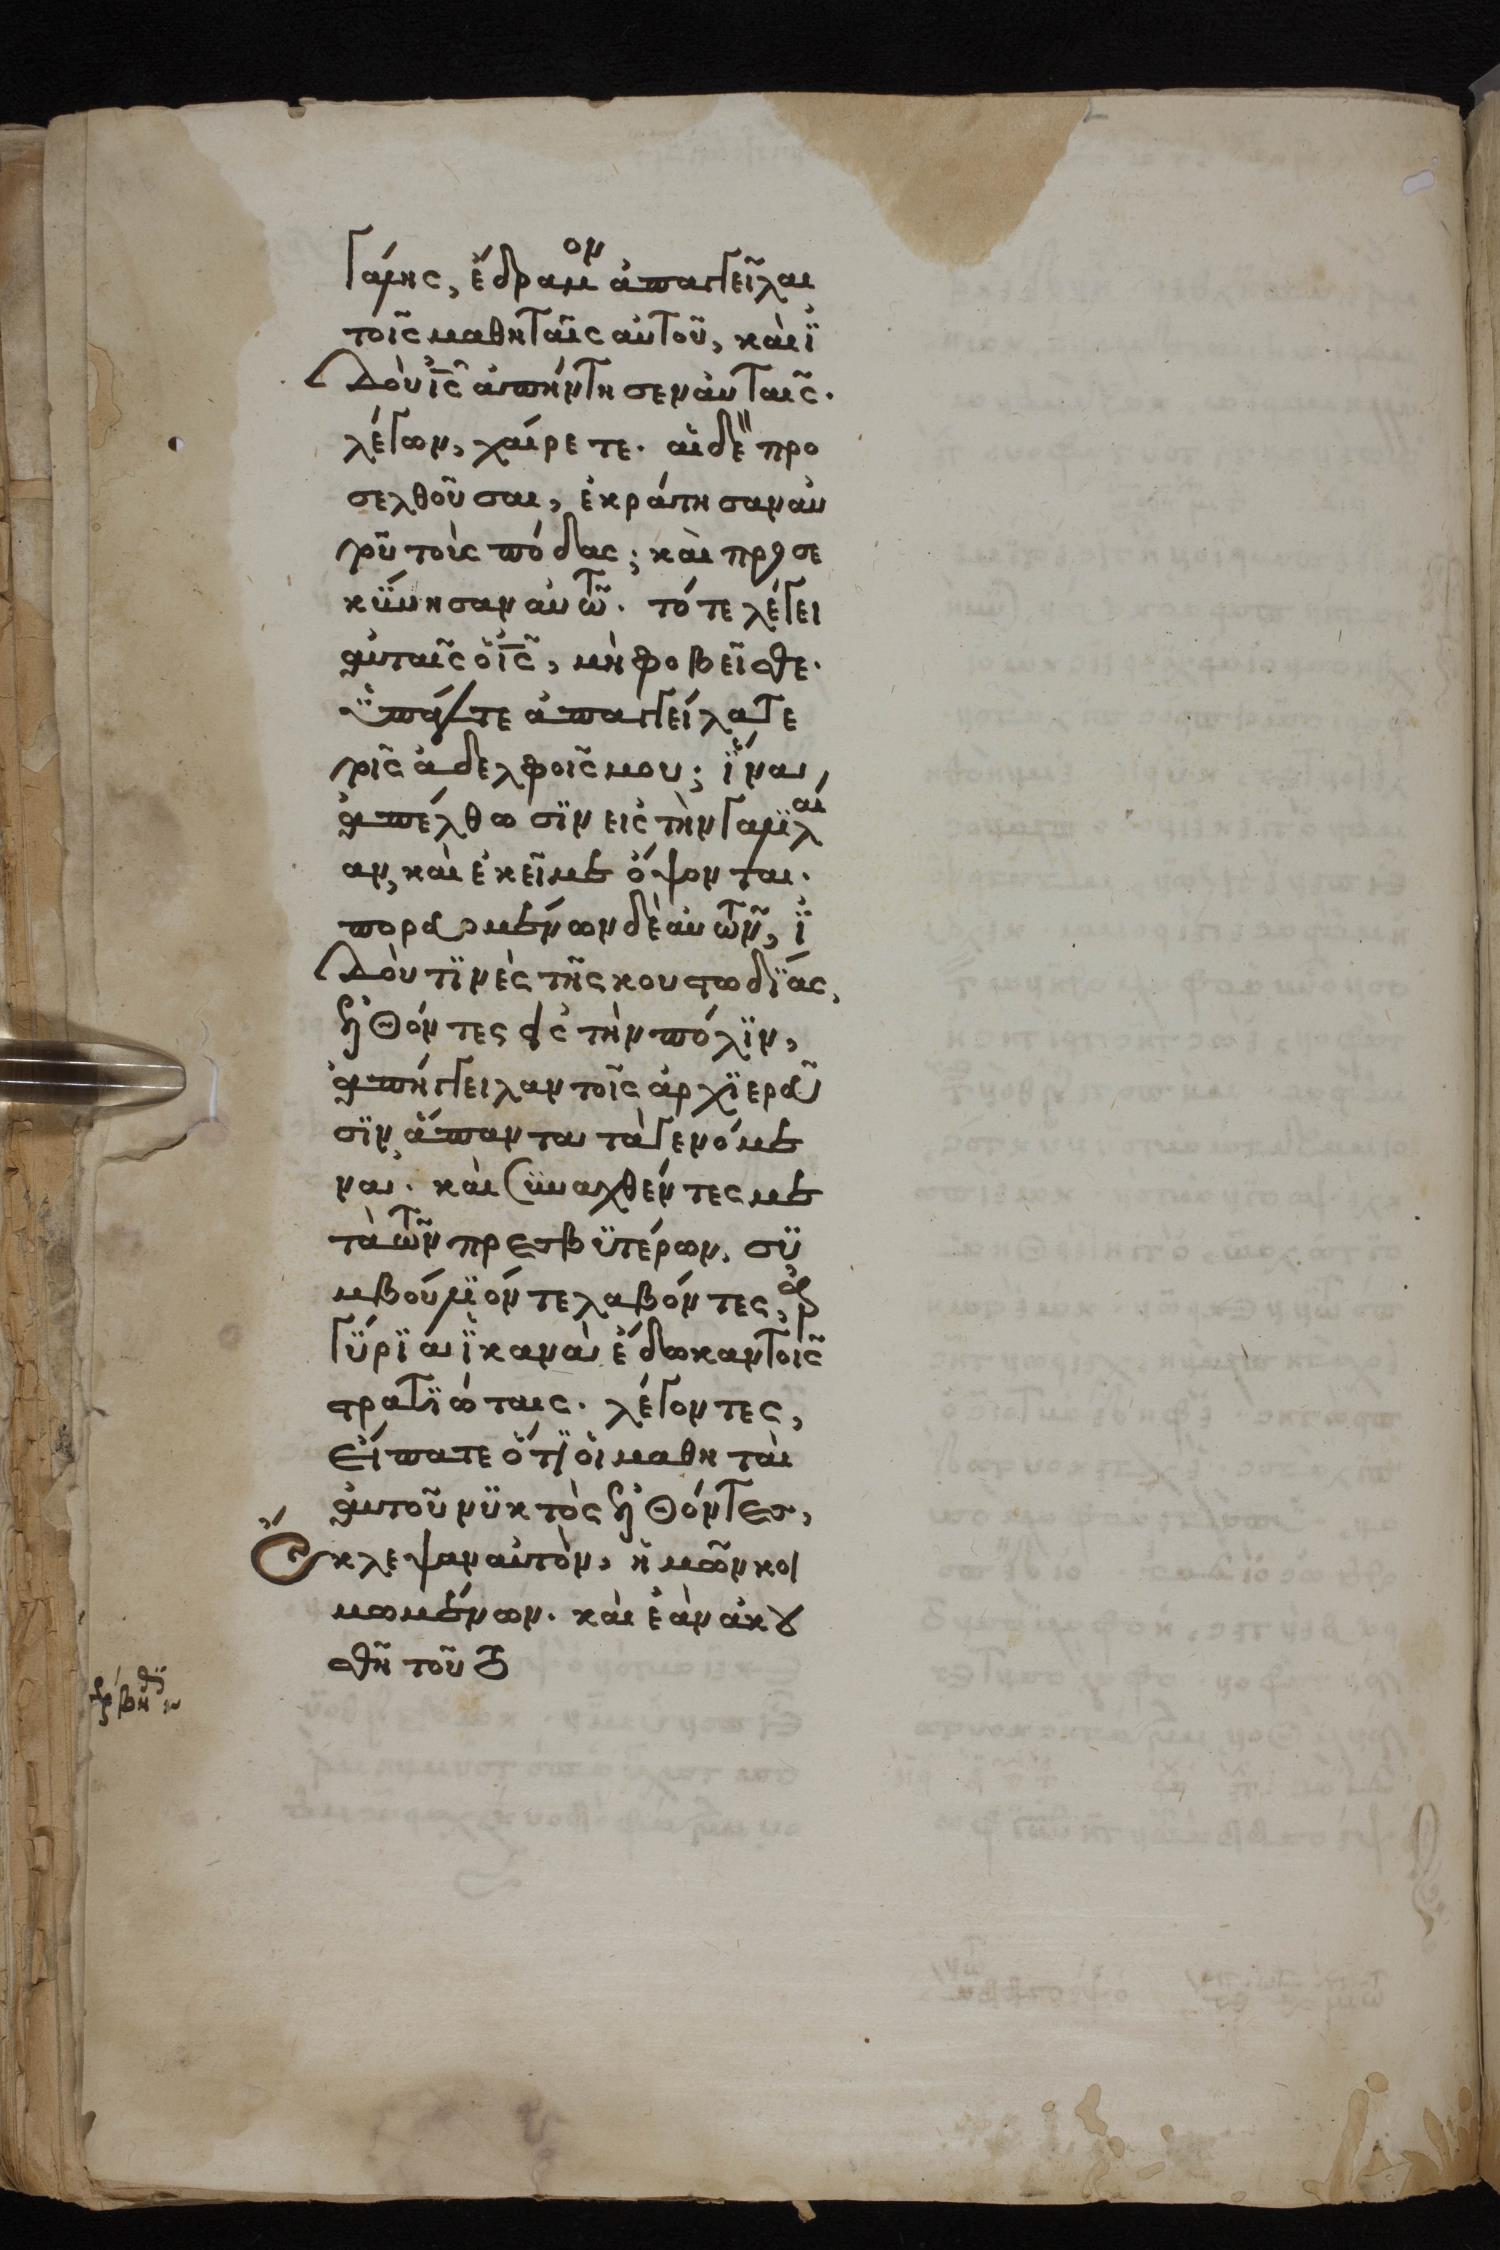 γάλης, ἔδραμον ἀπαγγεῖλαι
τοῖς μαθηταῖς αὐτοῦ, καὶ ἰ
δοὺ ις ἀπήντησεν αὐταῖς·
λέγων, χαίρετε· αἱ δὲ προ
σελθοῦσαι, ἐκράτησαν αὐ
τοῦ τοὺς πόδας· καὶ προσε
κύνησαν αὐτῶ· τότε λέγει
αὐταῖς ὁ ις, μὴ φοβεῖσθε·
ὑπάγετε ἀπαγγείλατε
τοῖς ἀδελφοῖς μου· ἵνα
ἀπέλθωσϊν εἰς τὴν γαλϊλαί
αν, καὶ ἐκεῖ με ὄψονται·
πορευομένων δὲ αὐτῶν, ἰ
δοὺ τϊνὲς τῆς κουστωδΐας,
ἐλθόντες εἰς τὴν πόλϊν,
ἀπήγγειλαν τοῖς ἀρχϊερεῦ
σϊν ἅπαντα τὰ γενόμε
να· καὶ συναχθέντες με
τὰ τῶν πρεσβϋτέρων, συ
μβούλϊόν τε λαβόντες, ἀρ
γύρϊα ἱκανὰ ἔδωκαν τοῖς
στρατϊώταις· λέγοντες,
εἴπατε ὅτϊ οἱ μαθηταὶ
αὐτοῦ νϋκτὸς ἐλθόντες,
ἔκλεψαν αὐτὸν, ἡμῶν κοι
μωμένων· καὶ ἐὰν ἀκου
σθῆ τοῦτο